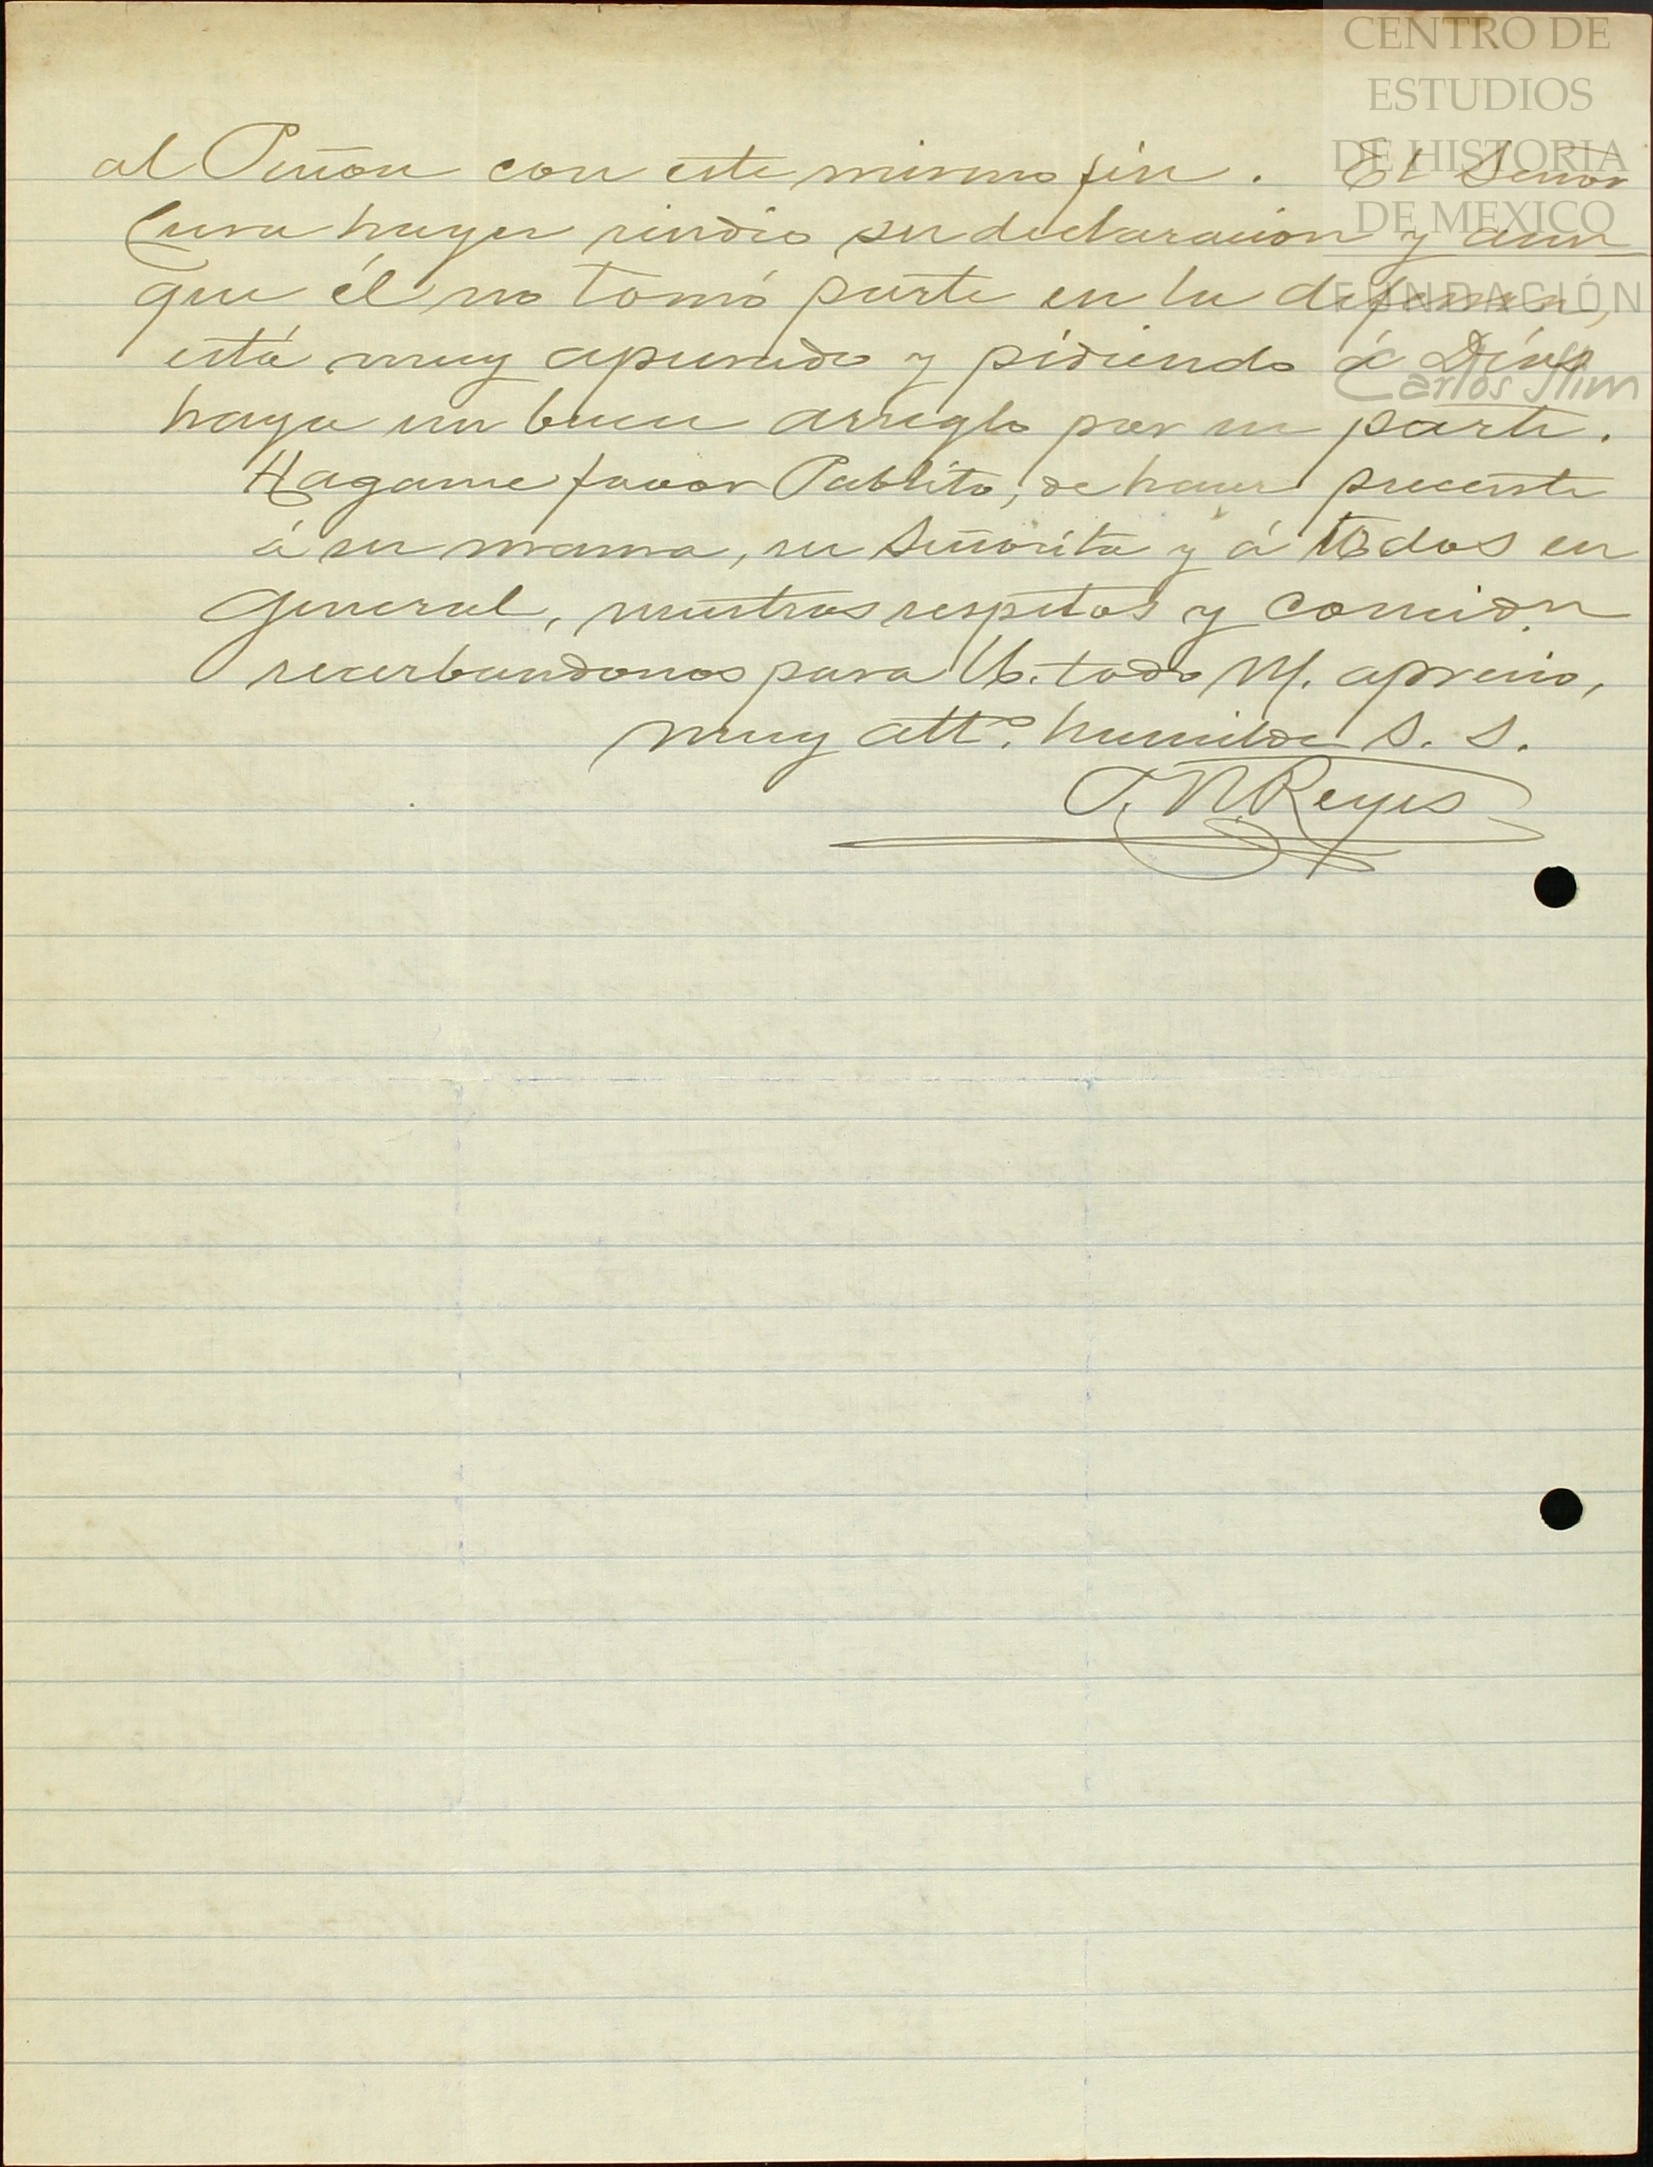 CENTRO DE
ESTUDIOS
DE HISTORIA
DE MEXICO
FUNDACIÓN
Carlos Slim
al Peñon con este mismo fin. El Señor
Cura hayer rindio su declaracion y aun
que él no tomó parte en la defensa,
está muy apurado y pidiendo á Dios
haya un buen arreglo por su parte.
Hagame favor Pablito, de hacer precente
á su mama, su Señorita y á todos en
General, nuestros respetos y
recerbandonos para U. todo N. aprecio,
muy atto. humilde S. S.
N. Reyes